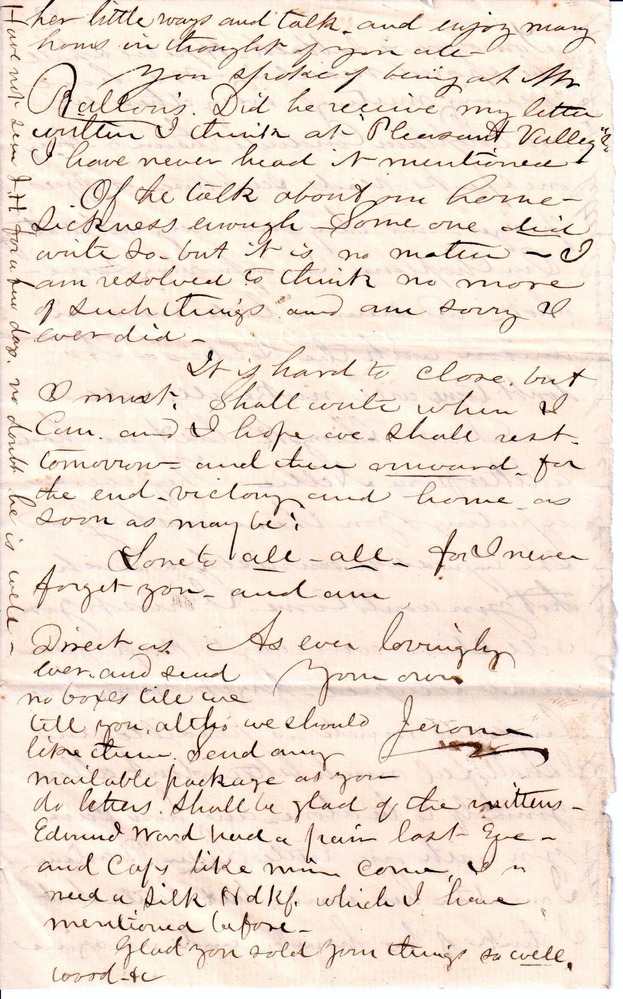 her little ways and talk. and enjoy many
hours in thought of you all -
You spoke of being at Mr
Ballou's. Did he receive my letter
written I think at "Pleasant Valley"?
I have never heard it mentioned -
Of the talk about our home-
sickness enough - Some one did
write so - but it is no matter - I
am resolved to think no more
of such things and am sorry I
ever did -
It is hard to close, but
I must. Shall write when I
can. and I hope we shall rest
tomorrow - and then onward - for
the end - victory and home as
soon as may be.
Love to all - all - for I never
forget you - and am
As ever lovingly
Your own
Jerome
Direct as
ever. and send
no boxes till we
tell you, altho we should
like them. Send any
mailable package as you
do letters. Shall be glad of the mittens -
Edmund Word had a pair last Eve -
and Caps like mine come,
need a silk Hdkf. which I have
mentioned before -
Glad you sold your things so well,
wood - &c
Have not seen J. H. for a few days. no doubt he is well -